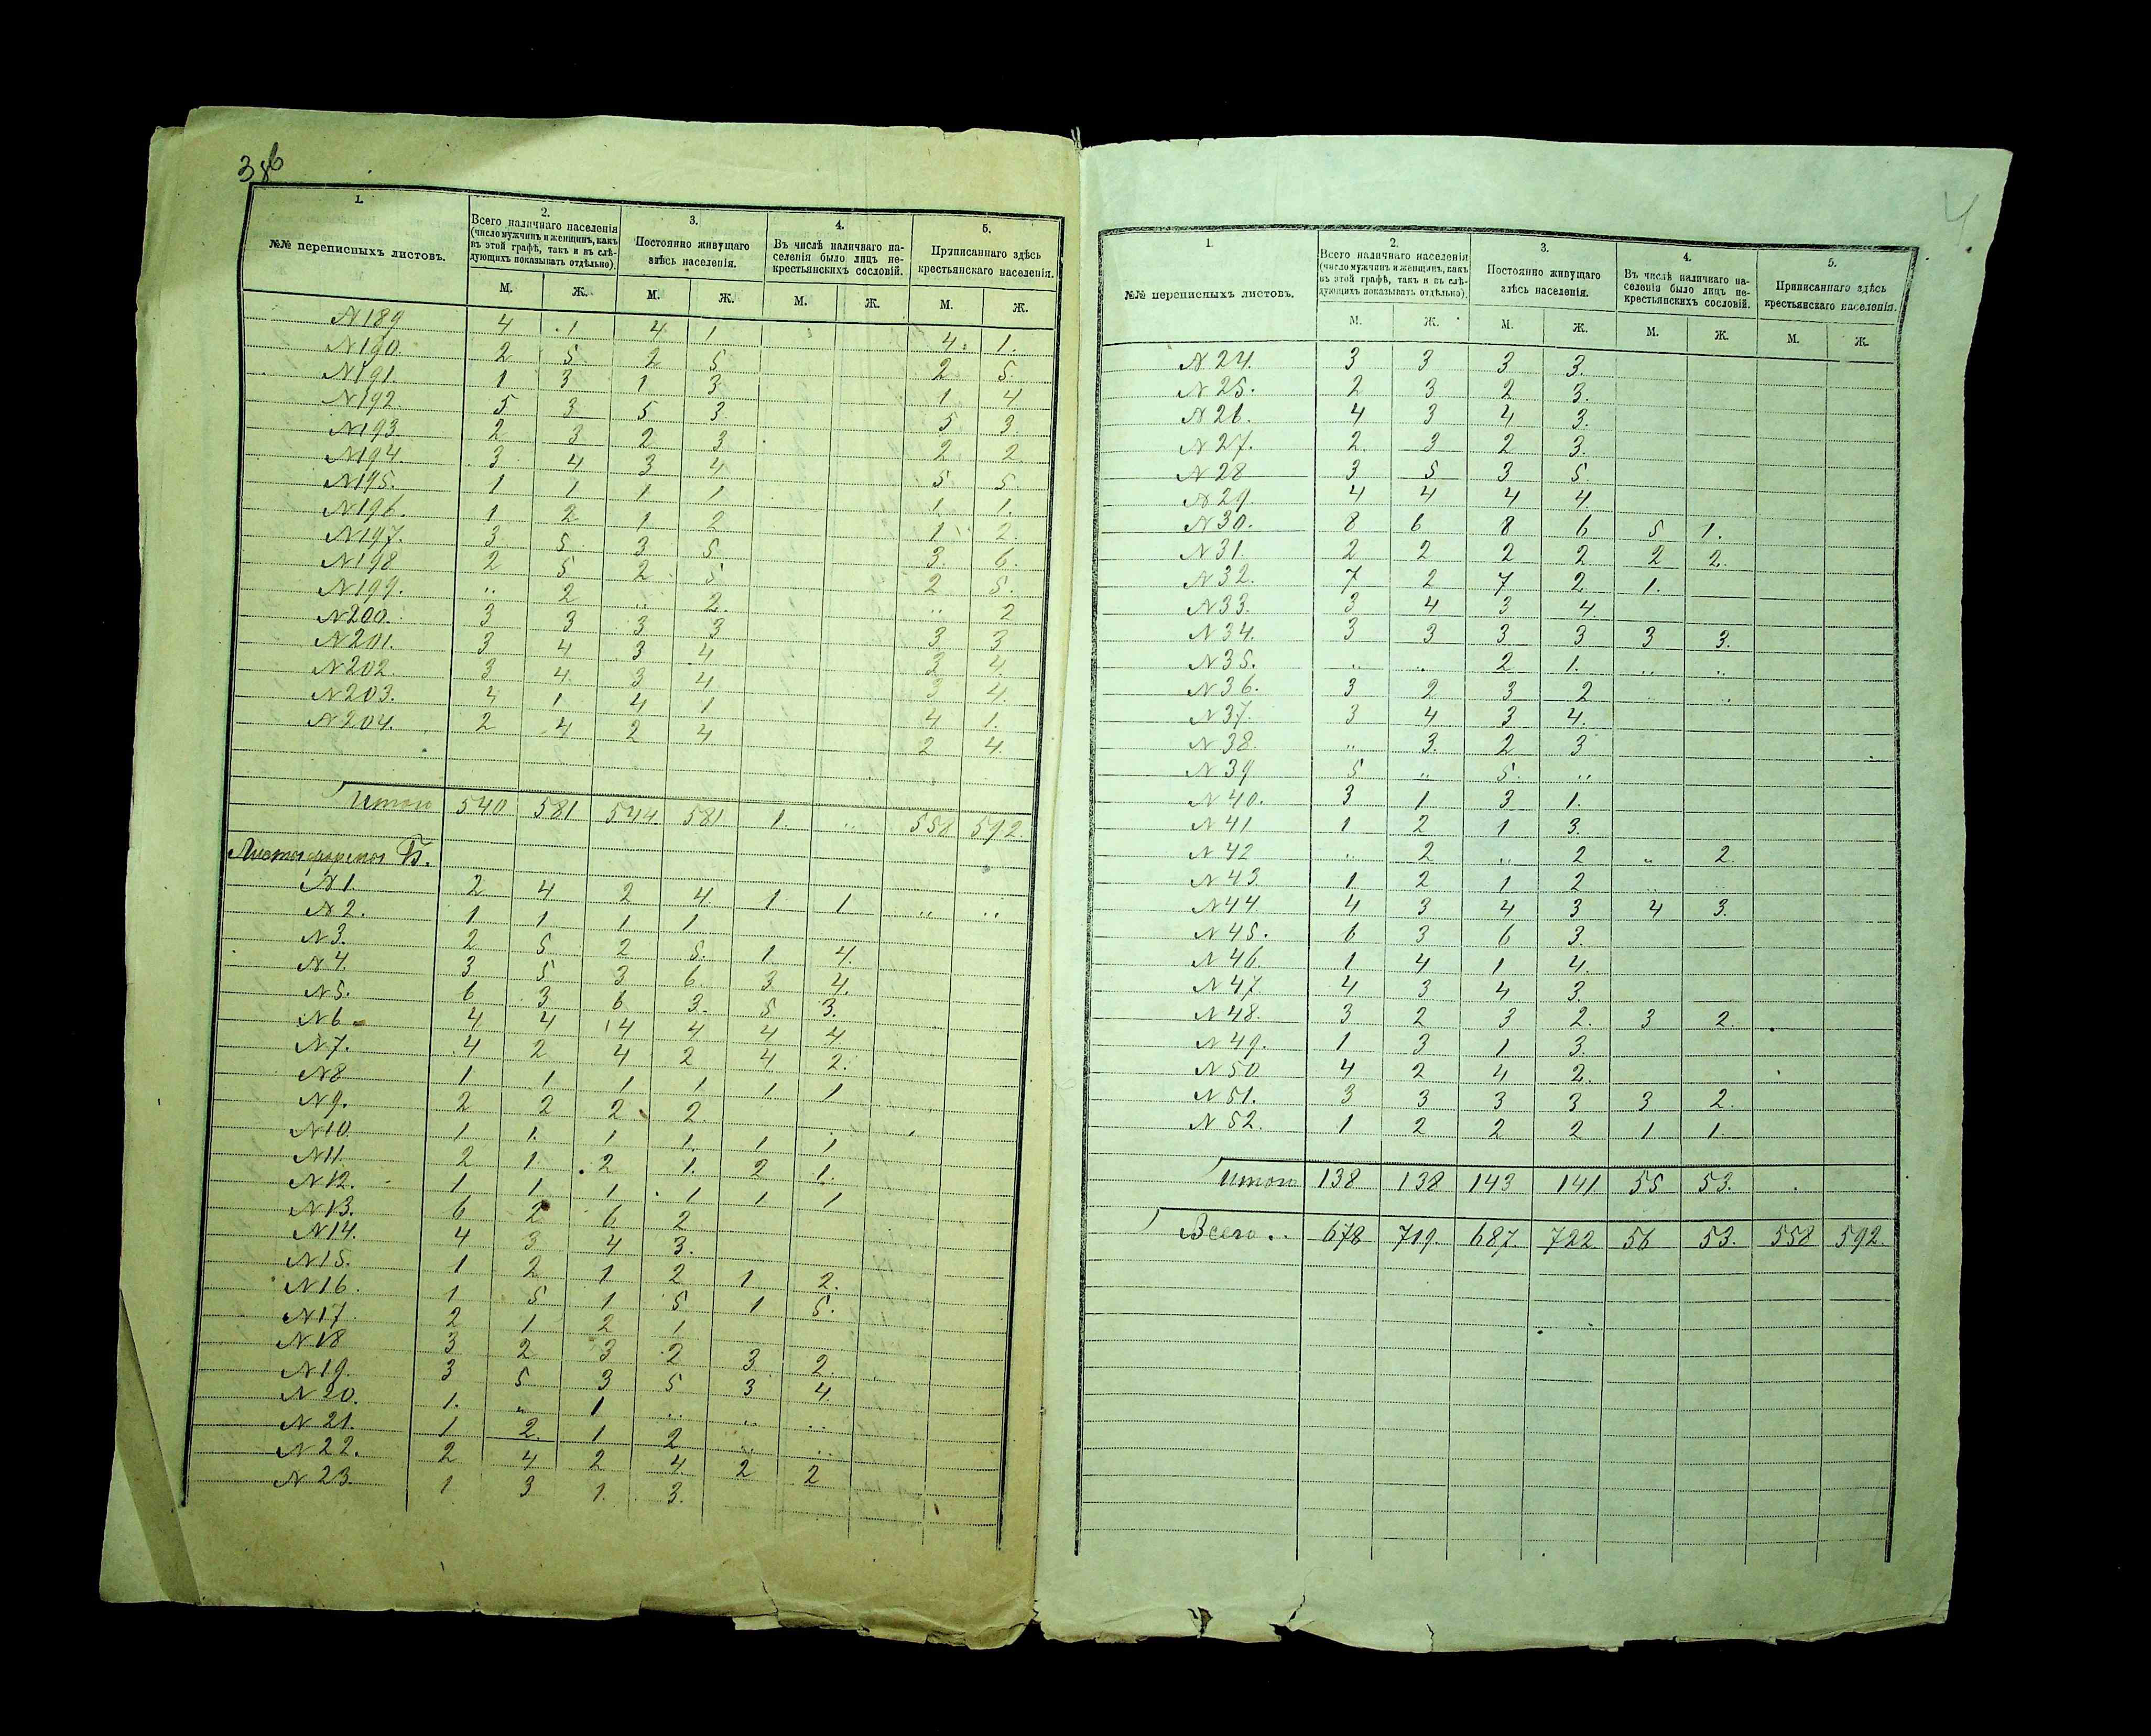 386
1.
№№ переписныхъ листовъ.
2.
Всего наличнаго населенія
(число мужчинъ и женщинъ, какъ
въ этой графѣ, такъ и въ слѣ-
дующихъ показывать отдѣльно).
3.
Постоянно живущаго
здѣсь населенія.
4.
Въ числѣ наличнаго на-
селенія было лицъ не-
крестьянскихъ сословій.
5.
Приписаннаго здѣсь
крестьянскаго населенія.
М. Ж. М. Ж. М. Ж. М. Ж.
№ 189 4 1 4 1 4 1.
№ 190 2 5 2 5 2 5.
№ 191. 1 3 1 3 1 4
№ 192 5 3 5 3 5 3.
№ 193. 2 3 2 3 2 2.
№ 194 3 4 3 4 5 5
№ 195. 1 1 1 1 1 1.
№ 196. 1 2 1 2 1 2.
№ 197. 3 5 3 5 3. 6.
№ 198 2 5 2 5 2 5.
№ 199. .. 2 .. 2. .. 2
№ 200. 3 3 3 3 3 3
№ 201. 3 4 3 4 3 4.
№ 202. 3 4 3 4 3 4.
№ 203. 4 1 4 1 4 1.
№ 204. 2 4 2 4 2 4.
Итого 540 581 544 581 1. .. 558 592.
Листы формы Б.
№ 1. 2 4 2 4 1 1 .. ..
№ 2. 1 1 1 1
№ 3. 2 5 2 5. 1 4.
№ 4. 3 5 3 6. 3 4.
№ 5. 6 3 6 3. 5 3.
№ 6 4 4 4 4 4 4
№ 7. 4 2 4 2 4 2.
№ 8 1 1 1 1 1 1
№ 9. 2 2 2 2
№ 10 1 1. 1 1. 1 1
№ 11. 2 1 2 1. 2 1.
№ 12. 1 1 1 1 1 1
№ 13. 6 2 6 2
№ 14. 4 3 4 3.
№ 15. 1 2 1 2 1 2.
№ 16. 1 5 1 5 1 5.
№ 17 2 1 2 1
№ 18 3 2 3 2 3 2.
№ 19. 3 5 3 5 3 4.
№ 20. 1. .. 1 .. .. ..
№ 21. 1 2. 1 2 .. ..
№ 22. 2 4 2 4 2 2
№ 23. 1 3 1. 3.
4
1.
№№ переписныхъ листовъ.
2.
Всего наличнаго населенія
(число мужчинъ и женщинъ, какъ
въ этой графѣ, такъ и въ слѣ-
дующихъ показывать отдѣльно).
3.
Постоянно живущаго
здѣсь населенія.
4.
Въ числѣ наличнаго на-
селенія было лицъ не-
крестьянскихъ сословій.
5.
Приписаннаго здѣсь
крестьянскаго населенія.
М. Ж. М. Ж. М. Ж. М. Ж.
№ 24. 3 3 3 3.
№ 25. 2 3 2 3.
№ 26. 4 3 4 3.
№ 27. 2 3 2 3.
№ 28 3 5 3 5.
№ 29. 4 4 4 4.
№ 30. 8 6 8 6 5 1.
№ 31. 2 2 2 2 2 2.
№ 32. 7 2 7 2 1.
№ 33. 3 4 3 4
№ 34. 3 3 3 3 3 3.
№ 35. .. .. 2 1. .. ..
№ 36. 3 2 3 2 .. ..
№ 37. 3 4 3 4.
№ 38. .. 3. 2 3
№ 39 5 .. 5. ..
№ 40. 3 1 3 1.
№ 41 1 2 1 3.
№ 42 .. 2 .. 2 .. 2.
№ 43 1 2 1 2 .. ..
№ 44 4 3 4 3 4 3.
№ 45. 6 3 6 3.
№ 46. 1 4 1 4.
№ 47 4 3 4 3.
№ 48. 3 2 3 2. 3 2.
№ 49. 1 3 1 3.
№ 50 4 2 4 2.
№ 51. 3 3 3 3 3 2.
№ 52. 1 2 2 2 1 1.
Итого 138 138 143 141 55 53.
Всего .. 678 719. 687. 722 56 53. 558 592.